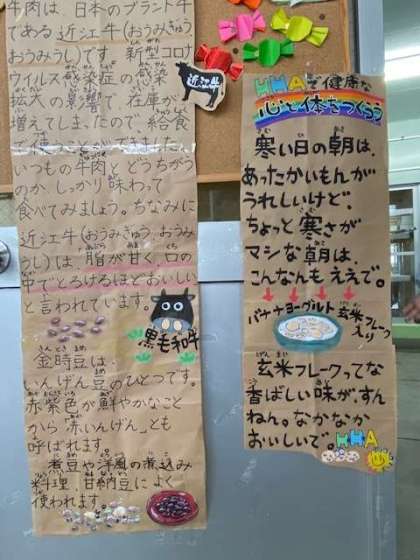 牛肉は 日本のブランド牛
である近江牛(おうみぎゅう
おうみうし)です。新型コロナ
ウイルス感染症の感染
拡大の影響で 在庫が
増えてしまったので 給食
で使うことができました。
いつもの牛肉と どうちがう
のか しっかり味わって
食べてみましょう。ちなみに
近江牛(おうみぎゅう おうみ
うし)は 脂が甘く、口の
中でとろけるほどおいしい
と言われています。
近江牛
黒毛和牛
金時豆は、
いんげん豆のひとつです。
赤紫色が鮮やかなこと
から「赤いんげん」とも
呼ばれます
煮豆や洋風の煮込み
料理 甘納豆によく
使われます。
HHAで健康な
心と体をつくろう
寒い日の朝は、
あったかいもんが
うれしいけど、
ちょっと寒さが
マシな朝は、
こんなんもええで。
バナナヨーグルト 玄米フレーク
入り
玄米フレークってな
香ばしい味がすん
ねん。なかなか
おいしいで。HHA